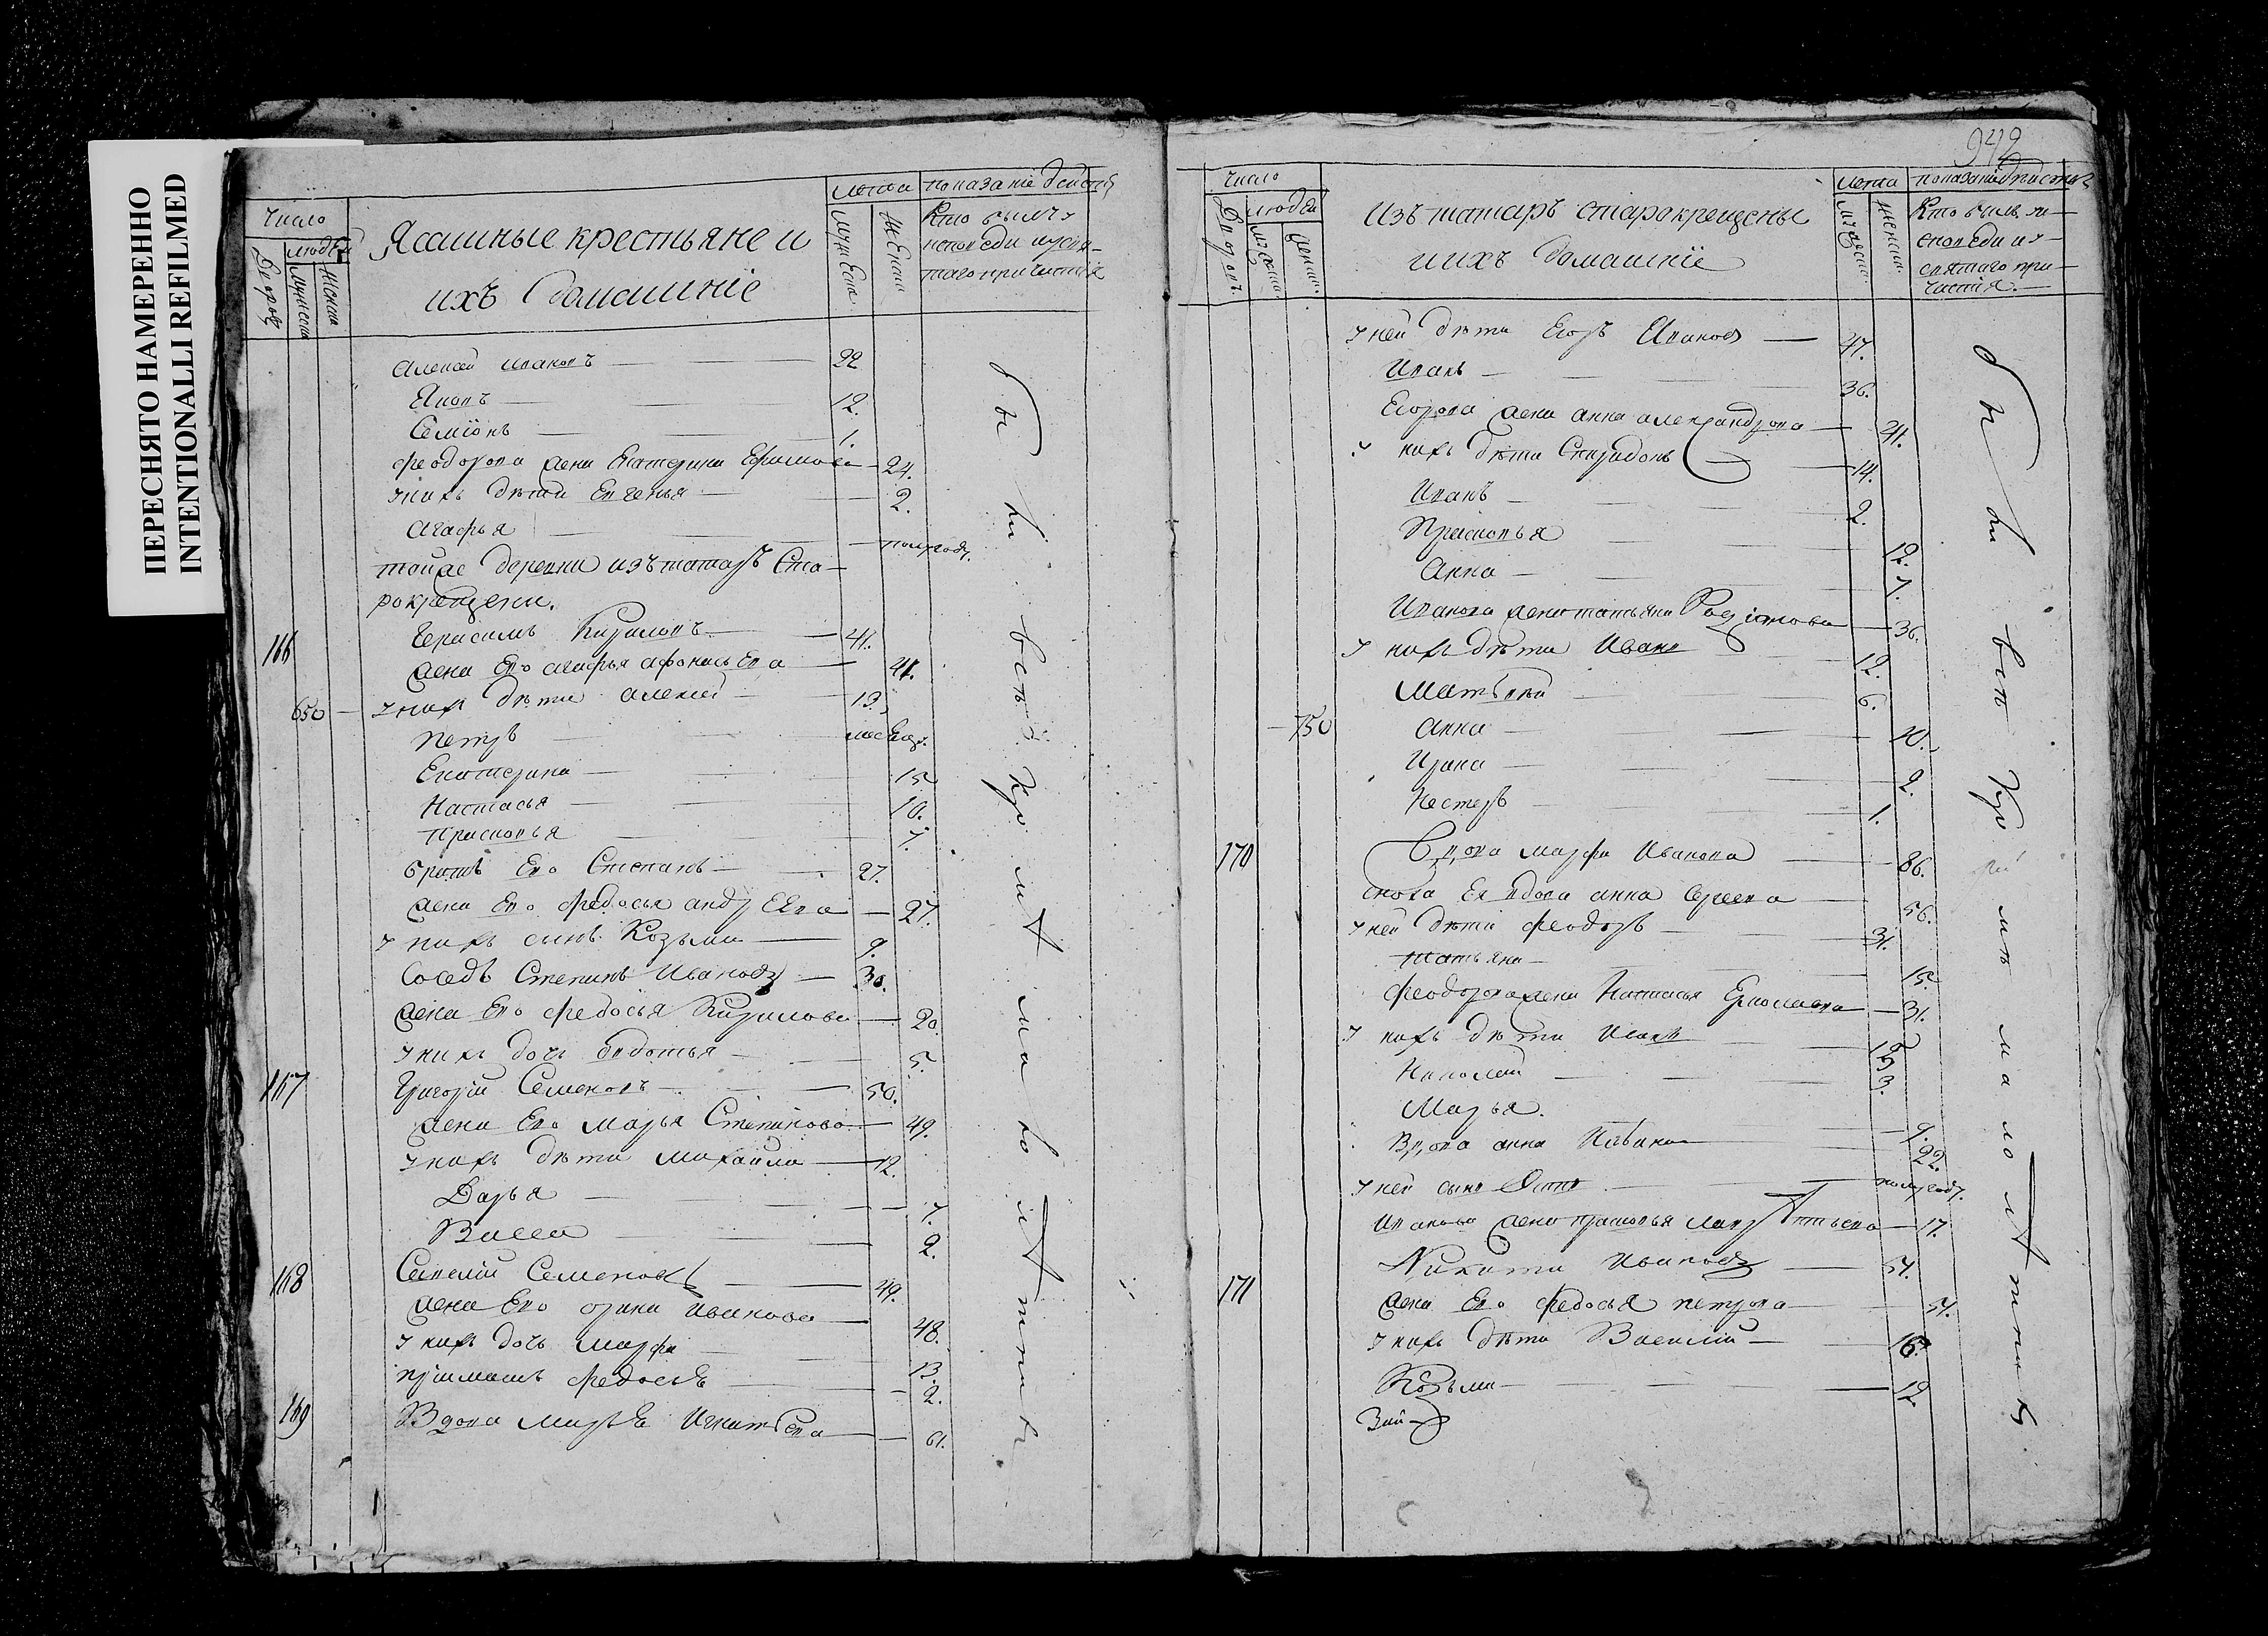 ПЕРЕСНЯТО НАМЕРЕННО
INTENTIONALLI REFILMED
Число
Дворовъ
людей
мужеска
женска
Ясашные крестьяне и
ихъ домашніе
лета
мужеска
женска
показаніе действ
Кто былъ у
исповеди и свя-
таго причастія
Алексей Ивановъ 22
Яковъ 12.
Семіонъ 1.
Феодорова жена Екатерина Ефимова 24.
у нихъ дѣти Евгенья 2.
Агафья полугоду.
тойже деревни изъ татаръ Ста-
рокрещены.
166 Герасимъ Кириловъ 41.
жена Ево Агафья Афонасьева 41.
650 у нихъ дѣти Алексей 13.
Петръ месецъ.
Екатерина 15
Настасья 10.
Прасковья 7.
братъ Ево Степанъ 27.
жена Ево Федосья Андреева 27.
у нихъ сынъ Козьма 9.
Соседъ Степанъ Ивановъ 30.
жена Ево Федосья Кирилова 20.
у нихъ дочь Евдотья 5.
167 Григорій Семеновъ 50.
жена Ево Марья Степанова 49.
у нихъ дѣти Михайла 12.
Дарья 7.
Васса 2.
168 Савелій Семеновъ 49.
жена Ево Орина Иванова 48.
у нихъ дочь Марфа 13.
пріимышъ Федосья 2.
169 Вдова Марья Игнатьева 61.
были все кроме малолетнихъ
942
Число
Дворовъ.
людей
мужеска
женска.
Изъ татаръ старокрещены
и ихъ домашніе
лета
мужеска
женска.
показаніе действ
Кто былъ у и-
споведи и у
святаго при-
частія.
у ней дѣти Егоръ Ивановъ 47.
Иванъ 36.
Егорова жена Анна Александрова 41.
у нихъ дѣти Спиридонъ 14.
Иванъ 2.
Прасковья 12.
Анна 7.
Иванова жена Татьяна Родіонова 36.
у нихъ дѣти Иванъ 12.
Матвей 6.
750 Анна 10.
Ирина 2
Нестеръ 1.
170 Вдова Марфа Иванова 86.
сноха Ея вдова Анна Сергеева 56.
у ней дѣти Феодоръ 31.
Татьяна 15.
Феодорова жена Настасья Ермолаева 31.
у нихъ дѣти Иванъ
Николай 3.
Марья. 9.
Вдова Анна Иванова 22.
у ней сынъ полугоду.
Иванова жена Прасковья 17.
171 Никита Ивановъ 54.
жена Ево Федосья Петрова 54.
у нихъ дѣти Василій 16.
Козьма 12
были все кроме малолетнихъ.